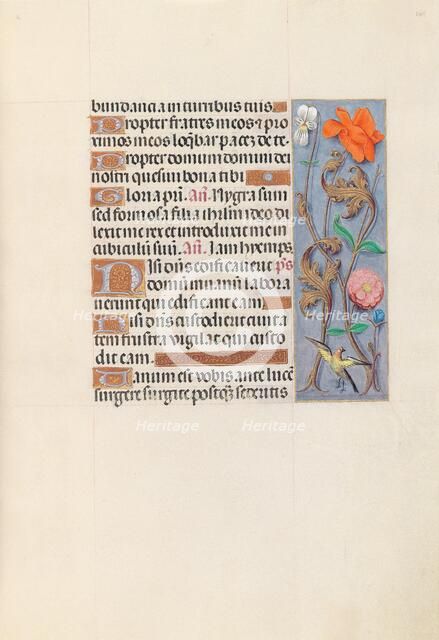 bundancia in turribus tuis
Propter fratres meos et pro
ximos meos loq̄bar pacez de te
Propter domum domini dei
nostri quesiui bona tibi
Gloria pr̄i. Añ. Nygra sum
sed formosa filia ihrl'm ideo di
lexit me rex et introduxit me in
cubiculū suū. Añ. Iam hyemps
Nisi dñs edificauerit p̄s
domum in uanū labora
uerunt qui edificant eam
Nisi dñs custodierit ciuita
tem frustra vigilat qui custo
dit eam.
Uanum est vobis ante lucē
surgere surgite postq̄ sederitis
Heritage Heritage Heritage
Heritage Heritage Heritage
Heritage Heritage